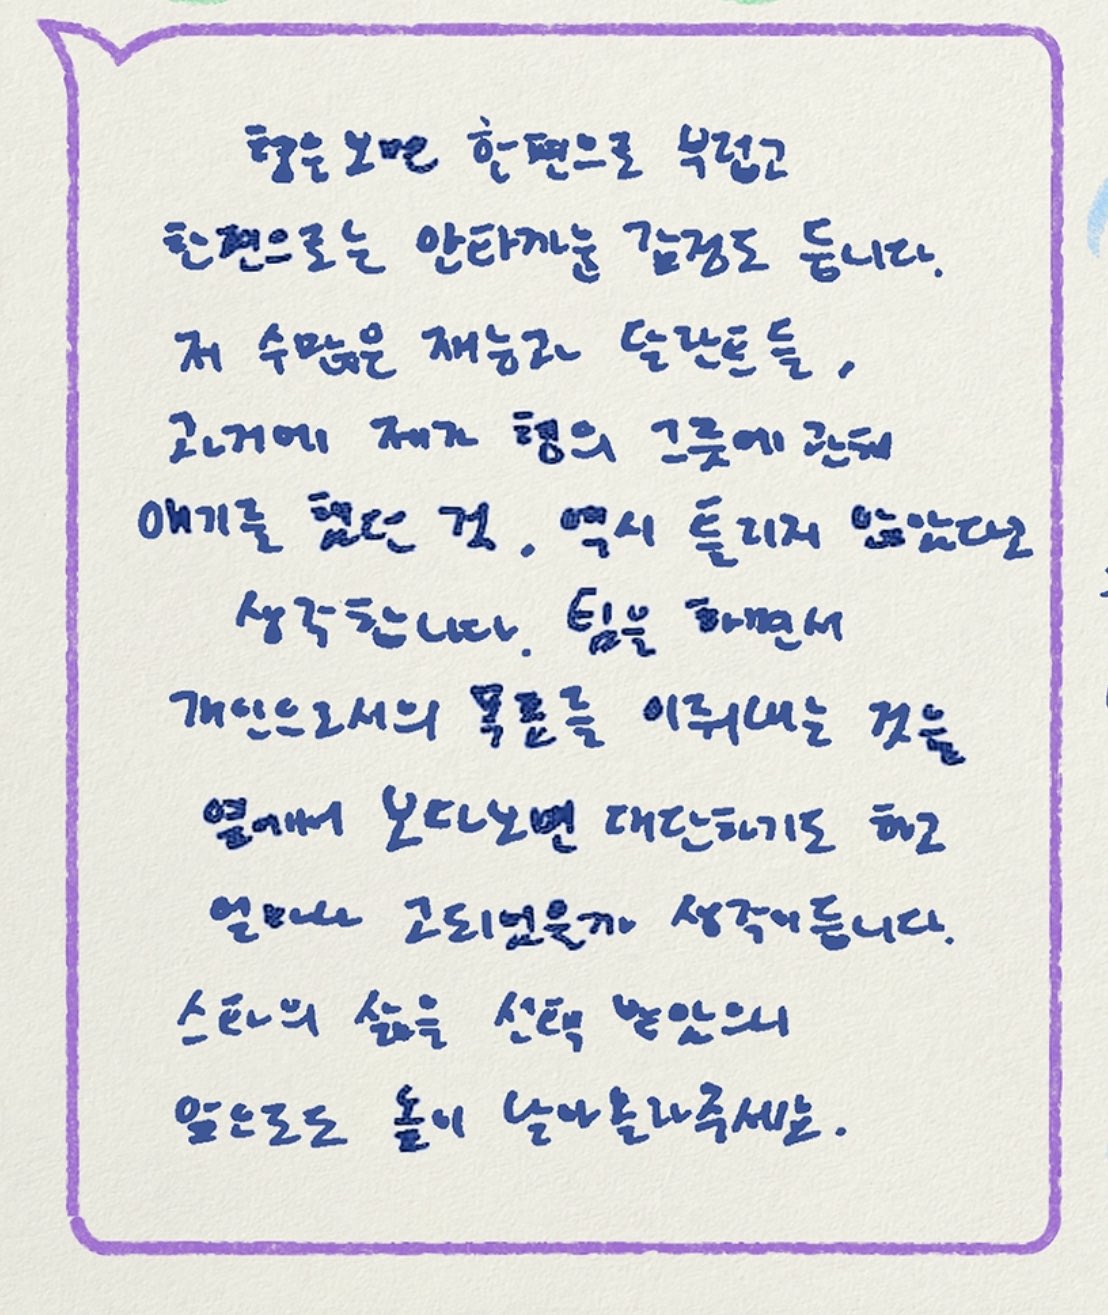 형을 보면 한편으로 부럽고
한편으로는 안타까운 감정도 듭니다.
저 수많은 재능과 달란트들,
과거에 제가 형의 그릇에 관해
얘기를 했던 것, 역시 틀리지 않았다고
생각합니다. 팀을 하면서
개인으로서의 목표를 이뤄내는 것을
옆에서 보다보면 대단하기도 하고
얼마나 고되었을까 생각이 듭니다.
스타의 삶을 선택 받았으니
앞으로도 높이 날아올라주세요.